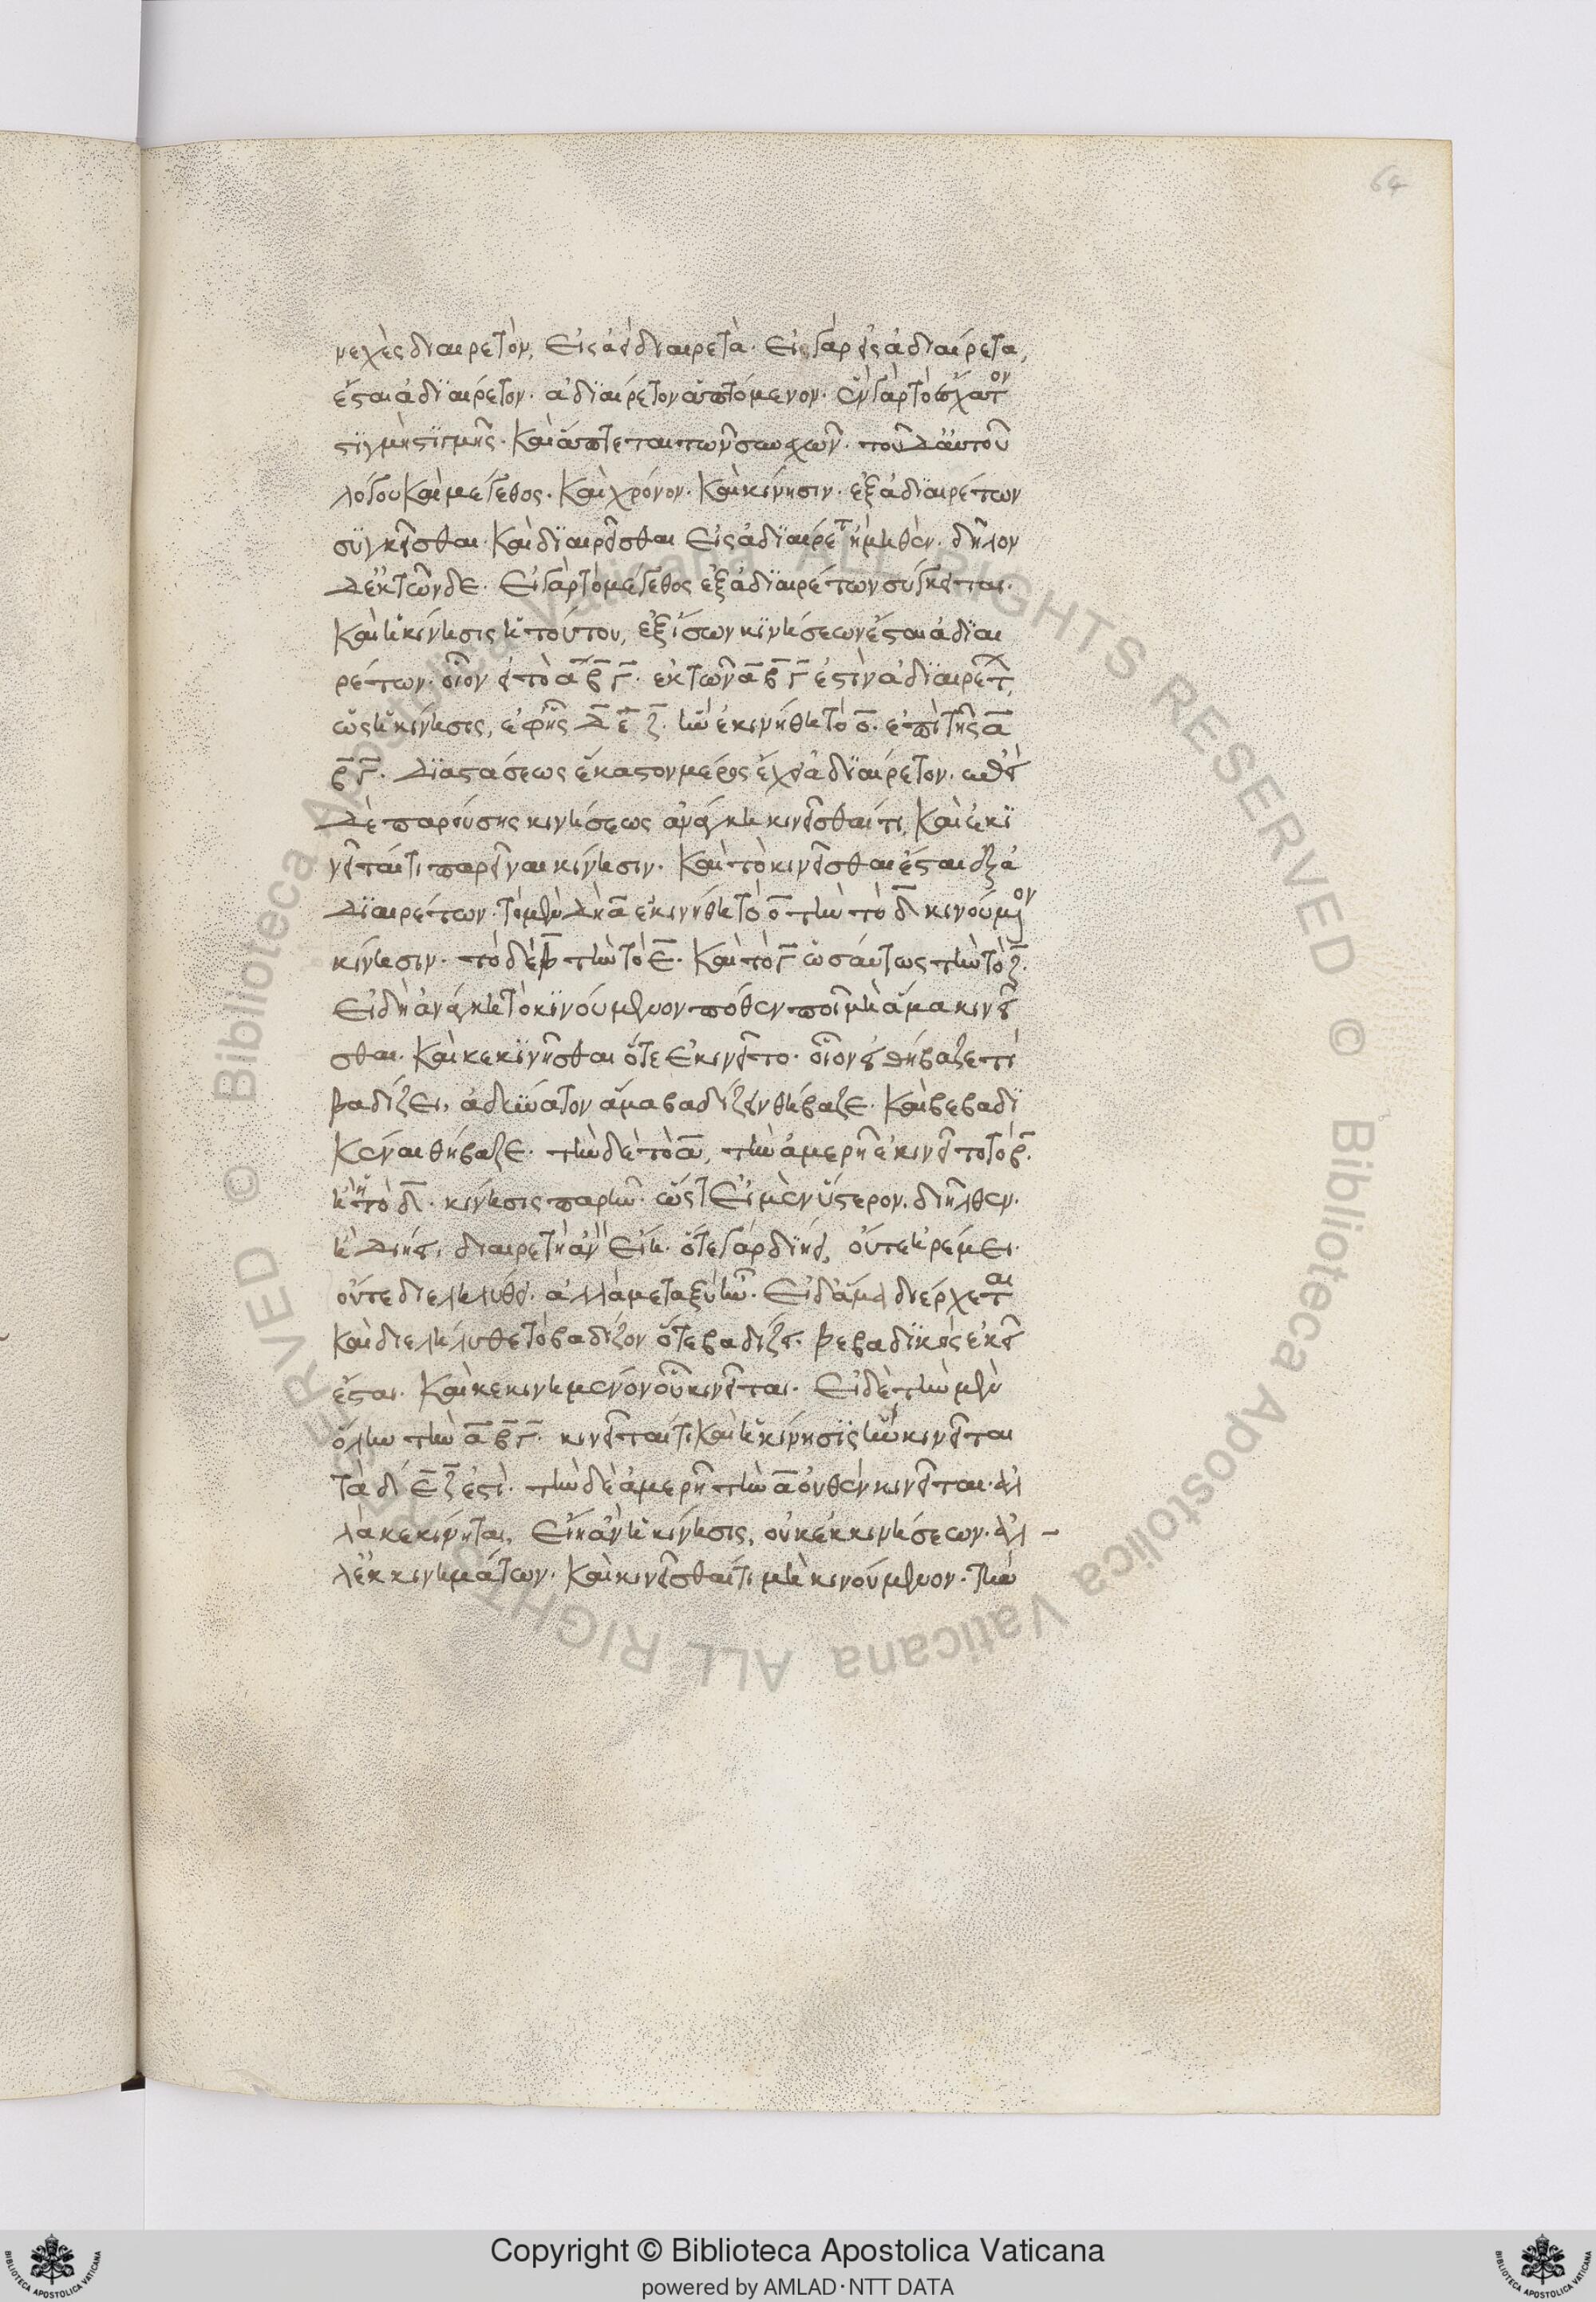 64
νεχὲς διαιρετὸν, εἰς ἀεὶ διαιρετά· εἰ γὰρ εἰς ἀδιαίρετα,
ἔσται ἀδιαίρετον· ἀδιαίρετον ἁπτόμενον· ἓν γὰρ τὸ ἔσχατον
στιγμὴ στιγμῆς· καὶ ἅπτεται τῶν συνεχῶν· τοῦ δ' αὐτοῦ
λόγου καὶ μέγεθος· καὶ χρόνον· καὶ κίνησιν· ἐξ ἀδιαιρέτων
συγκεῖσθαι· καὶ διαιρεῖσθαι εἰς ἀδιαίρετ ἢ μηθέν· δῆλον
δ' ἐκ τῶνδε· εἰ γὰρ τὸ μέγεθος ἐξ ἀδιαιρέτων σύγκειται·
καὶ ἡ κίνησις ἡ τούτου, ἐξ ἴσων κινήσεων ἔσται ἀδιαι
ρέτων· οἷον εἰ τὸ α β γ· ἐκ τῶν α β γ ἐστὶν ἀδιαιρέτ,
ὡς ἡ κίνησις, ἐφ' ἧς δ ε ζ· ἣν ἐκινήθη τὸ ο· ἐπὶ τῆς α
β γ· διαστάσεως ἕκαστον μέρος ἔχει ἀδιαίρετον·
δὲ παρούσης κινήσεως ἀνάγκη κινεῖσθαί τι, καὶ εἰ κι
νεῖταί τι παρεῖναι κίνησιν· καὶ τὸ κινεῖσθαι ἔσται ἐξ ἀ
διαιρέτων· τὸ μὲν δὴ α ἐκινήθη τὸ ο τὴν τὸ δ κινούμενον
κίνησιν· τὸ δὲ β τὴν τὸ ε· καὶ τὸ γ ὡσαύτως τὴν τὸ ζ·
εἰ δὴ ἀνάγκη τὸ κινούμενον πόθεν ποῖ μὴ ἅμα κινεῖ
σθαι· καὶ κεκινῆσθαι ὅτε ἐκινεῖτο· οἷον εἰ θήβαζέ τι
βαδίζει, ἀδύνατον ἅμα βαδίζειν θήβαζε· καὶ βεβαδι
κέναι θήβαζε· τὴν δὲ τὸ α, τὴν ἀμερῆ ἐκινεῖτο τὸ β·
ἡ τὸ δ· κίνησις παρῆν· ὥστ' εἰ μὲν ὕστερον διῆλθεν·
ἢ διήει, διαιρετὴ ἂν εἴη· ὅτε γὰρ διήει, οὔτε ἠρέμει·
οὔτε διεληλύθει· ἀλλὰ μεταξὺ ἦν· εἰ δ' ἅμα διέρχεται
καὶ διελήλυθε τὸ βαδίζον ὅτε βαδίζει· βεβαδικὸς ἐκεῖ
ἔσται· καὶ κεκινημένον οὗ κινεῖται· εἰ δὲ τὴν μὲν
ὅλην τὴν α β γ· κινεῖταί τι καὶ ἡ κίνησις ἣν κινεῖται
τὰ δ ε ζ ἐστὶ· τὴν δὲ ἀμερῆ τὴν α οὐθὲν κινεῖται· ἀλ
λὰ κεκίνηται, εἴη ἂν ἡ κίνησις, οὐκ ἐκ κινήσεων· ἀλ
λ' ἐκ κινημάτων· καὶ κινεῖσθαί τι μὴ κινούμενον· τὴν
Copyright © Biblioteca Apostolica Vaticana
powered by AMLAD·NTT DATA